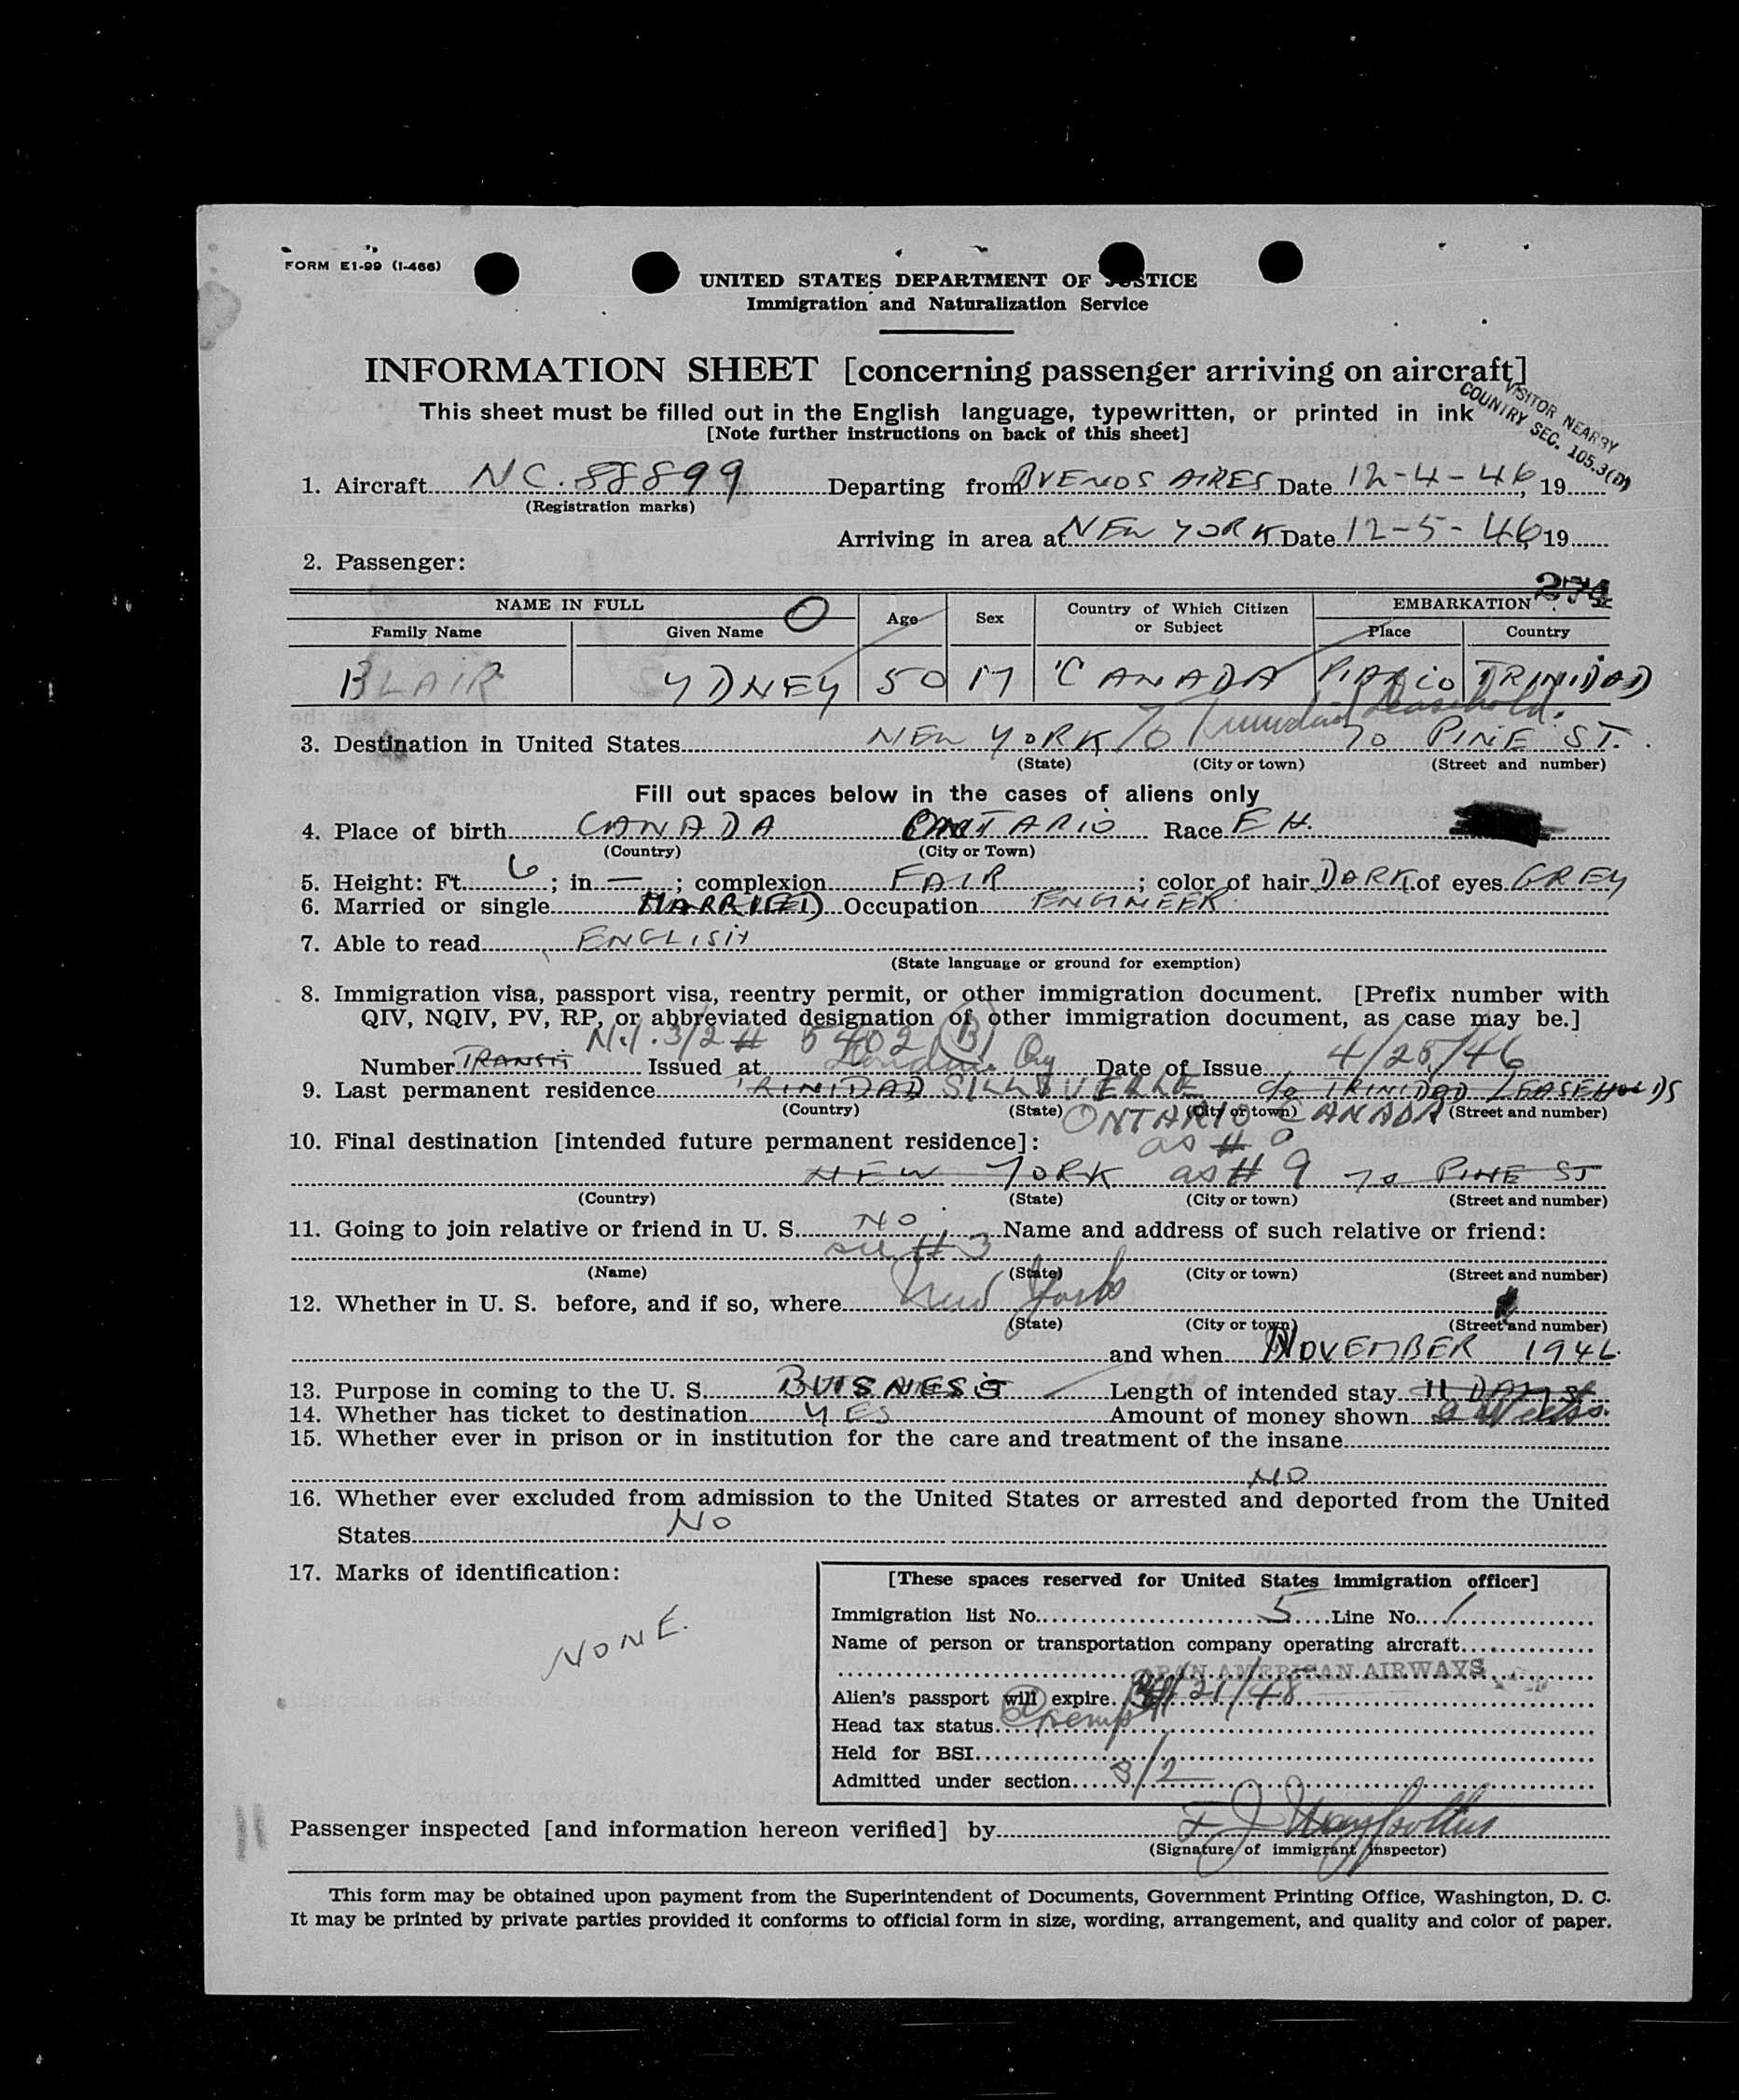 FORM E1-99 (I-466)
UNITED STATES DEPARTMENT OF JUSTICE
Immigration and Naturalization Service
INFORMATION SHEET [concerning passenger arriving on aircraft]
This sheet must be filled out in the English language, typewritten, or printed in ink
[Note further instructions on back of this sheet]
VISITOR NEARBY
COUNTRY SEC. 105.3(D)
1. Aircraft NC.88899 Departing from BUENOS AIRES Date 12-4-46, 19
(Registration marks)
Arriving in area at NEW YORK Date 12-5-46, 19
2. Passenger:
274
NAME IN FULL Age Sex Country of Which Citizen or Subject EMBARKATION
Family Name Given Name Place Country
BLAIR SYDNEY 50 M CANADA PIARCO TRINIDAD
c/o Trinidad Leasehold.
3. Destination in United States NEW YORK 70 PINE ST.
(State) (City or town) (Street and number)
Fill out spaces below in the cases of aliens only
4. Place of birth CANADA ONTARIO Race E H.
(Country) (City or Town)
5. Height: Ft. 6; in. —; complexion FAIR; color of hair DARK of eyes GREY
6. Married or single MARRIED Occupation ENGINEER
7. Able to read ENGLISH
(State language or ground for exemption)
8. Immigration visa, passport visa, reentry permit, or other immigration document. [Prefix number with
QIV, NQIV, PV, RP, or abbreviated designation of other immigration document, as case may be.]
N.I. 3/2 # 5402 (B)
Number TRANSIT Issued at London Date of Issue 4/25/46
9. Last permanent residence TRINIDAD c/o TRINIDAD LEASEHOLDS
(Country) (State) (City or town) (Street and number)
ONTARIO CANADA
10. Final destination [intended future permanent residence]: as # 9
NEW YORK as # 9 70 PINE ST
(Country) (State) (City or town) (Street and number)
11. Going to join relative or friend in U. S. NO Name and address of such relative or friend:
see # 3
(Name) (State) (City or town) (Street and number)
12. Whether in U. S. before, and if so, where New York
(State) (City or town) (Street and number)
and when NOVEMBER 1946
13. Purpose in coming to the U. S. BUISNESS Length of intended stay 11 DAYS
14. Whether has ticket to destination YES Amount of money shown
15. Whether ever in prison or in institution for the care and treatment of the insane
NO
16. Whether ever excluded from admission to the United States or arrested and deported from the United
States NO
17. Marks of identification:
NONE.
[These spaces reserved for United States immigration officer]
Immigration list No. 5 Line No. 1
Name of person or transportation company operating aircraft
PAN AMERICAN AIRWAYS
Alien's passport will expire 21/48
Head tax status Exempt
Held for BSI
Admitted under section 3/2
Passenger inspected [and information hereon verified] by
(Signature of immigrant inspector)
This form may be obtained upon payment from the Superintendent of Documents, Government Printing Office, Washington, D. C.
It may be printed by private parties provided it conforms to official form in size, wording, arrangement, and quality and color of paper.